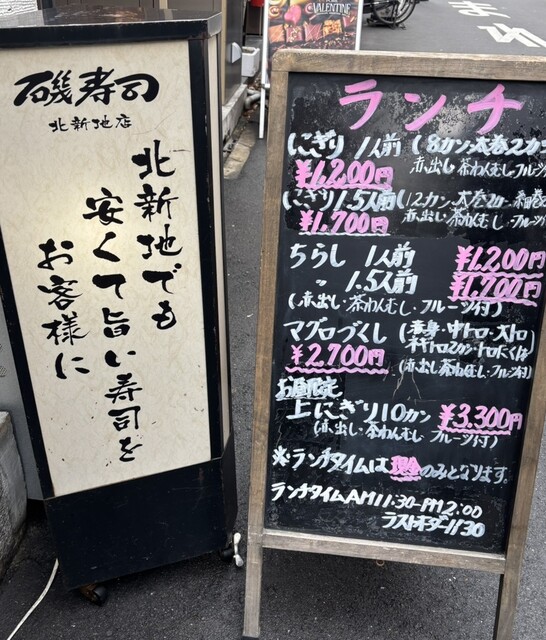 磯寿司
北新地店
北新地でも
安くて旨い寿司を
お客様に
VALENTINE
ランチ
にぎり 1人前 (8カン太巻2カン
¥1,200円 赤出し・茶わんむし・フルーツ付
にぎり 1.5人前 (12カン 太巻2カン 細巻
¥1,700円 赤出し・茶わんむし・フルーツ付
ちらし 1人前 ¥1,200円
〃 1.5人前 ¥1,700円
(赤出し・茶わんむし・フルーツ付)
マグロづくし (赤身・中トロ・大トロ
¥2,700円 ネギトロ2カン・トロたくは
(赤出し・茶わんむし・フルーツ付)
お昼限定
上にぎり10カン ¥3,300円
(赤出し・茶わんむし・フルーツ付)
※ランチタイムは現金のみとなります。
ランチタイムAM11:30-PM2:00
ラストオーダー1130